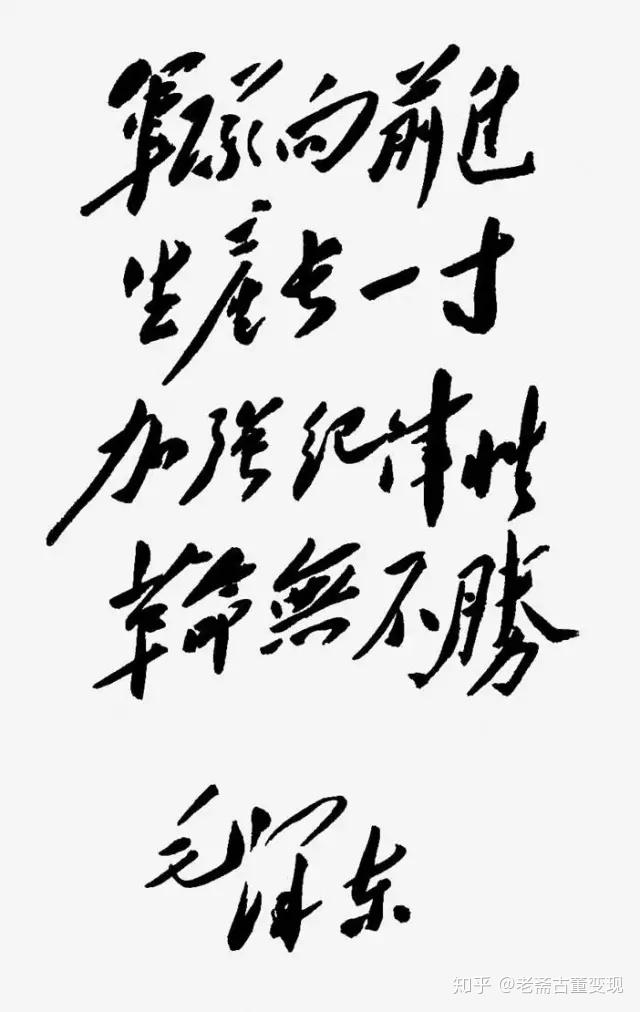 軍队向前進
生產长一寸
加強纪律性
革命無不勝
毛泽东
知乎 @老斋古董变现